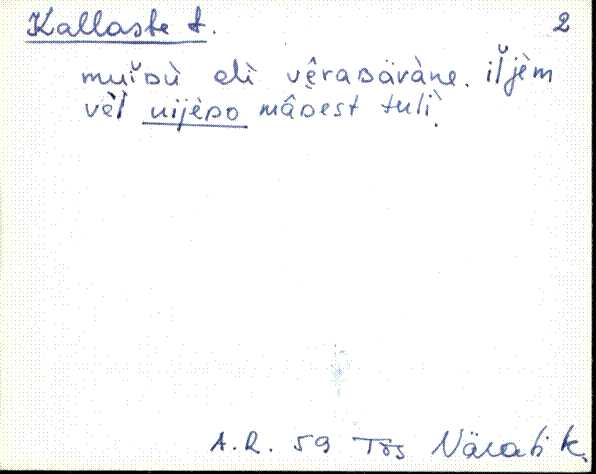 Kallaste t. 2
muìsù elì vêrasäràne. iľjèm
vèľ nijèso mâsest tulì.
A.R. 59 Tõs Närati k.